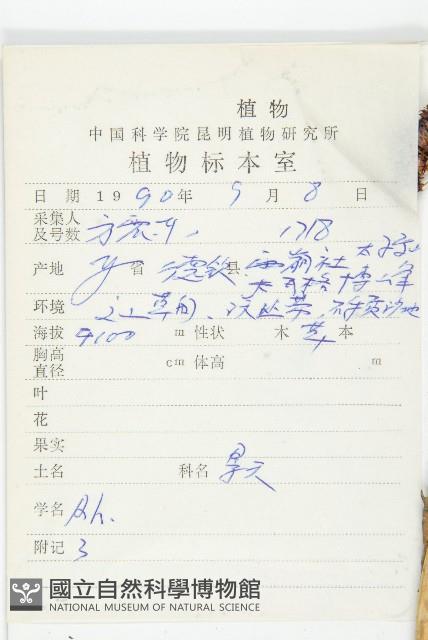 植物
中国科学院昆明植物研究所
植物标本室
日 期 1990年 9 月 8 日
采集人
及号数 方震东, 1718
产地 省 德钦 县
环境 草甸
海拔 4100 m 性状 木 草本
胸高
直径 cm 体高 m
叶
花
果实
土名 科名 景天
学名 Rh.
附记 3
國立自然科學博物館
NATIONAL MUSEUM OF NATURAL SCIENCE